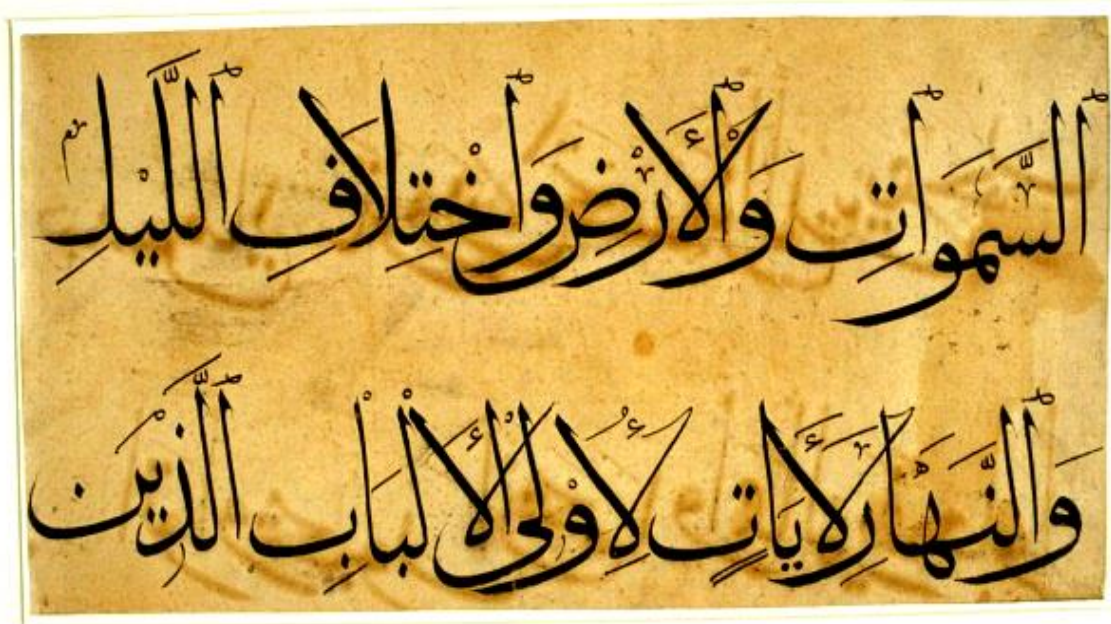 ٱلسَّمَوَاتِ وَٱلْأَرْضِ وَٱخْتِلَافِ ٱللَّيْلِ
وَٱلنَّهَارِ لَأَيَاتٍ لِأُوْلِى ٱلْأَلْبَابِ ٱلَّذِيْنَ